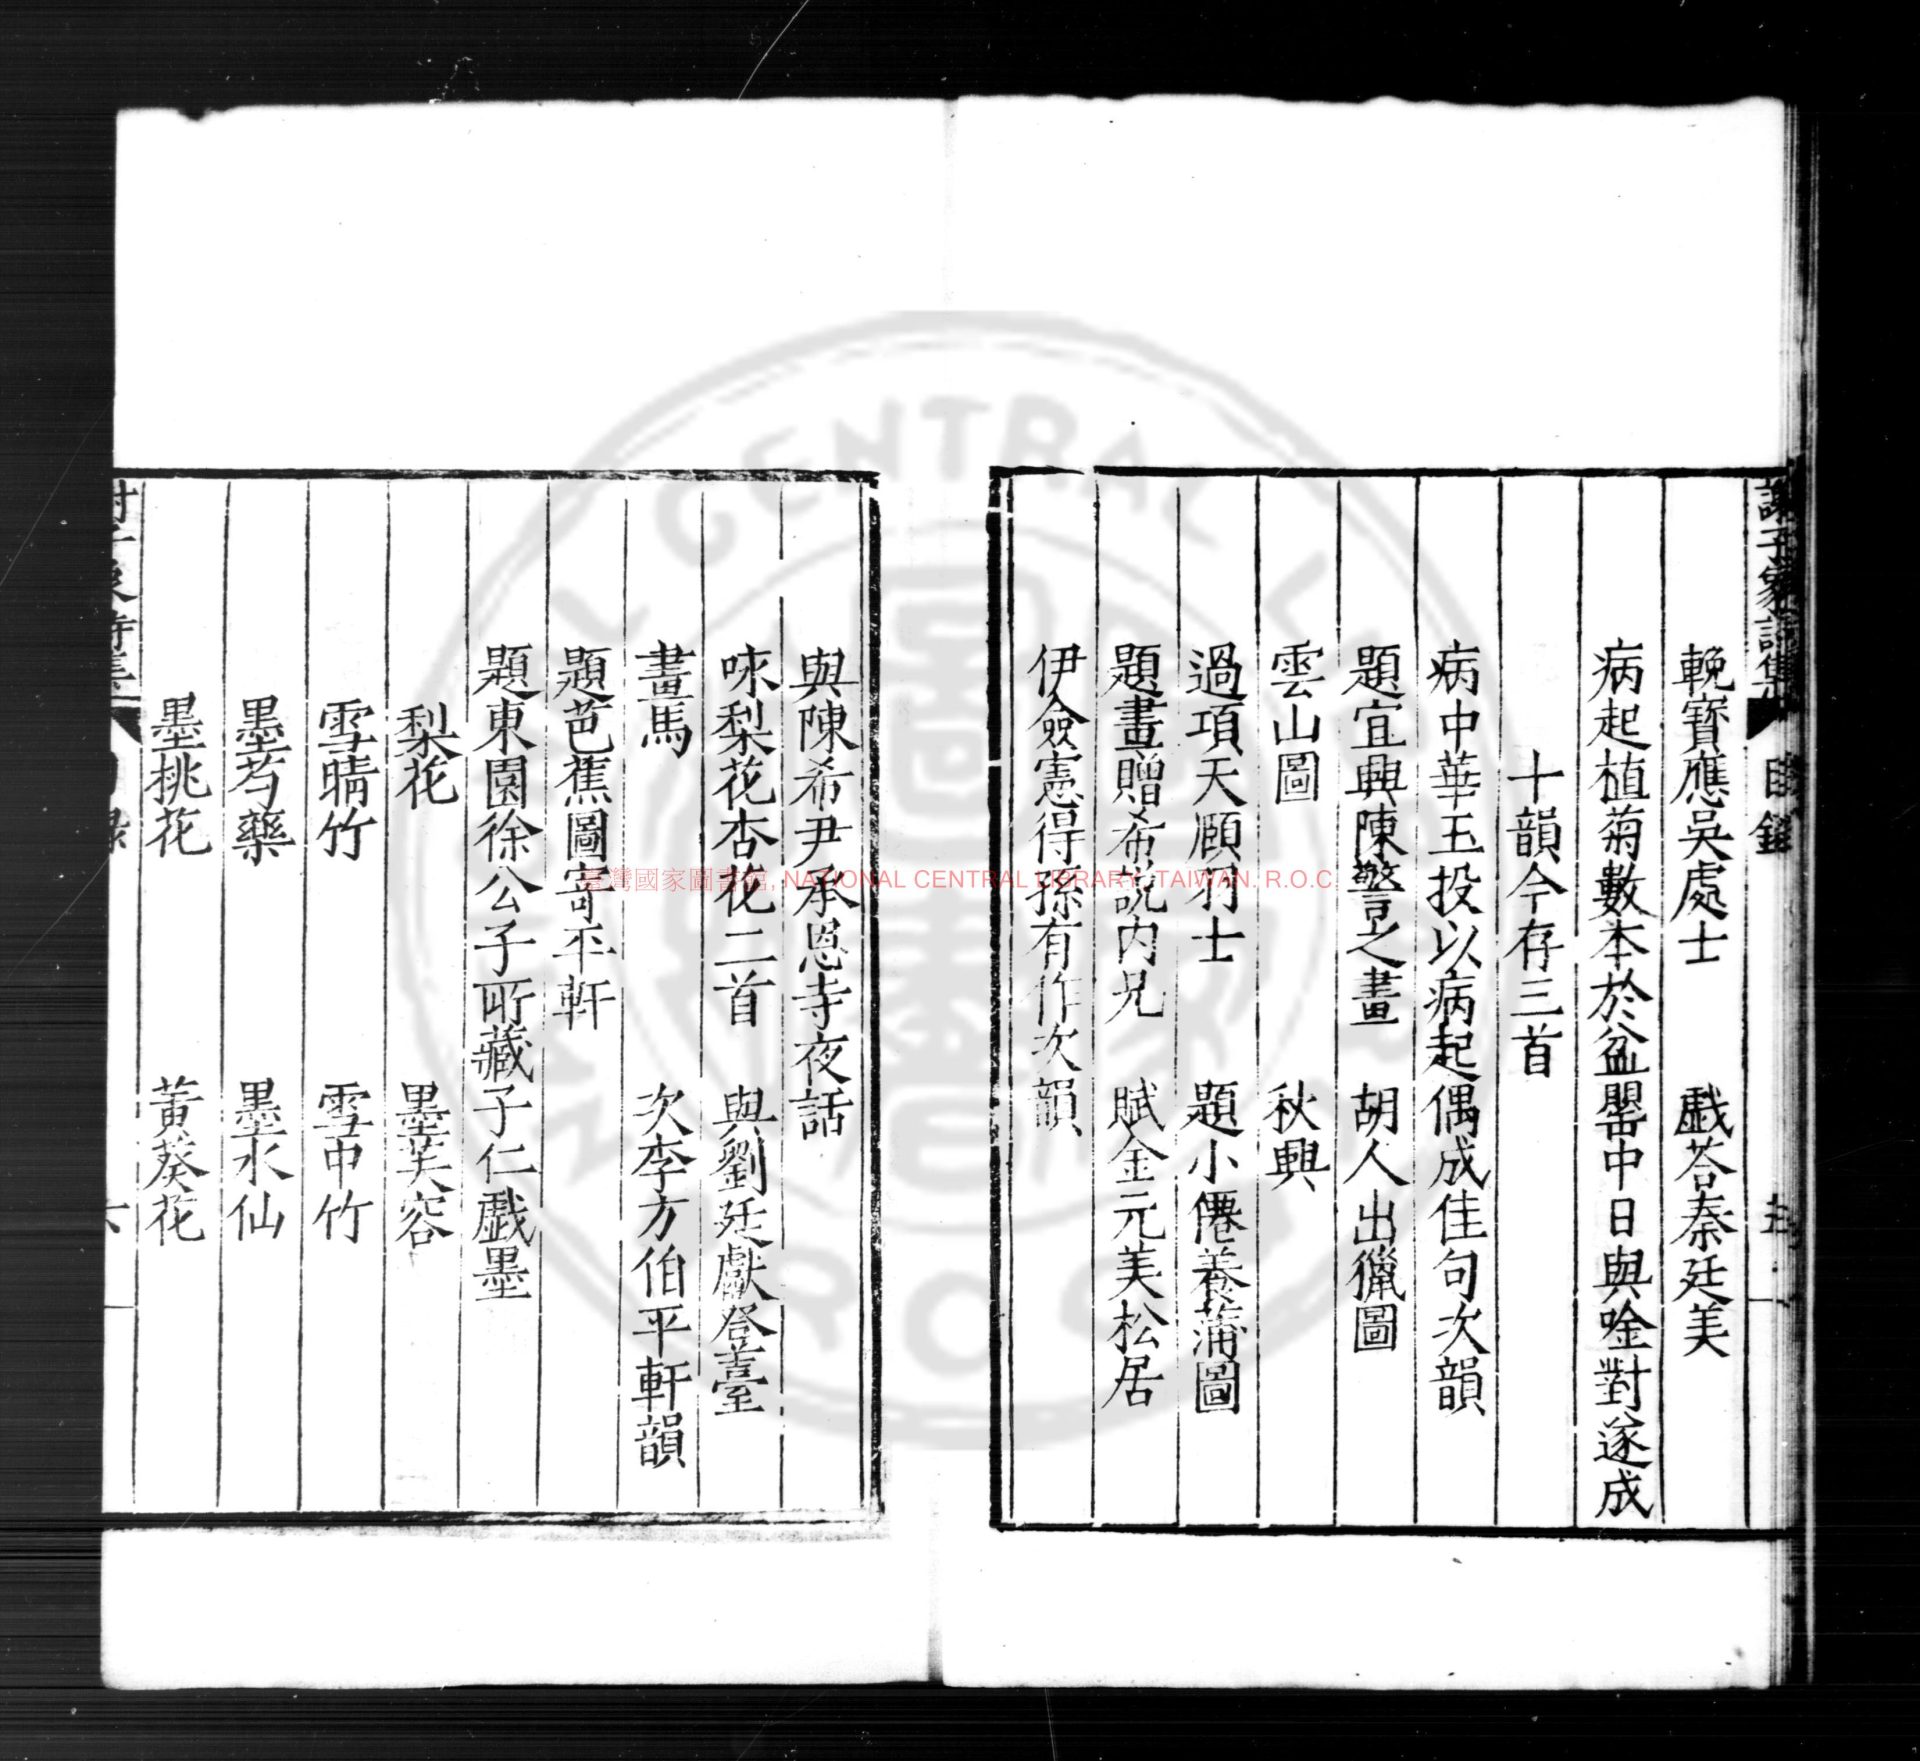 謝子象詩集 目錄 五
輓寶應吳處士 戱荅秦廷美
病起植菊數本於盆罌中日與唫對遂成
十韻今存三首
病中華玉投以病起偶成佳句次韻
題宜興陳警之畫 胡人出獵圖
雲山圖 秋興
過項天頋羽士 題小僊養蒲圖
題畫贈希説内兄 賦金元美松居
伊僉憲得孫有作次韻
與陳希尹承恩寺夜話
咏梨花杏花二首 與劉廷獻登臺
畫馬 次李方伯平軒韻
題芭蕉圖寄平軒
題東園徐公子所藏子仁戱墨
梨花 墨芙容
雪晴竹 雪中竹
墨芍藥 墨水仙
墨桃花 黃葵花
謝子象詩集 目錄 六
臺灣國家圖書館, NATIONAL CENTRAL LIBRARY, TAIWAN. R.O.C